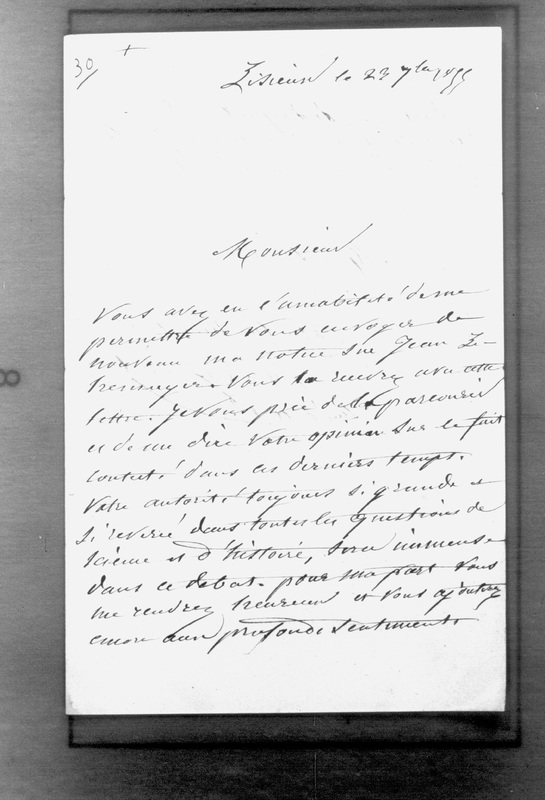 30/ +
Lisieux le 23 7bre 1855
Monsieur
Vous avez eu l'amabilité de me
permettre de vous envoyer de
nouveau ma notice sur Jean Le
hennuyer. Vous la recevrez avec cette
lettre. Je vous prie de la parcourir
et de me dire votre opinion sur le fait
contesté dans ces derniers temps.
Votre autorité toujours si grande et
si reverée dans toutes les questions de
science et d'histoire, sera immense
dans ce debat. pour ma part vous
me rendrez heureux et vous ajouterez
encore aux profonds sentiments
8